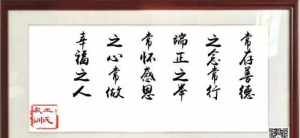 常存善德
之念常行
端正之举
常怀感恩
之心常做
幸福之人
王氏家训